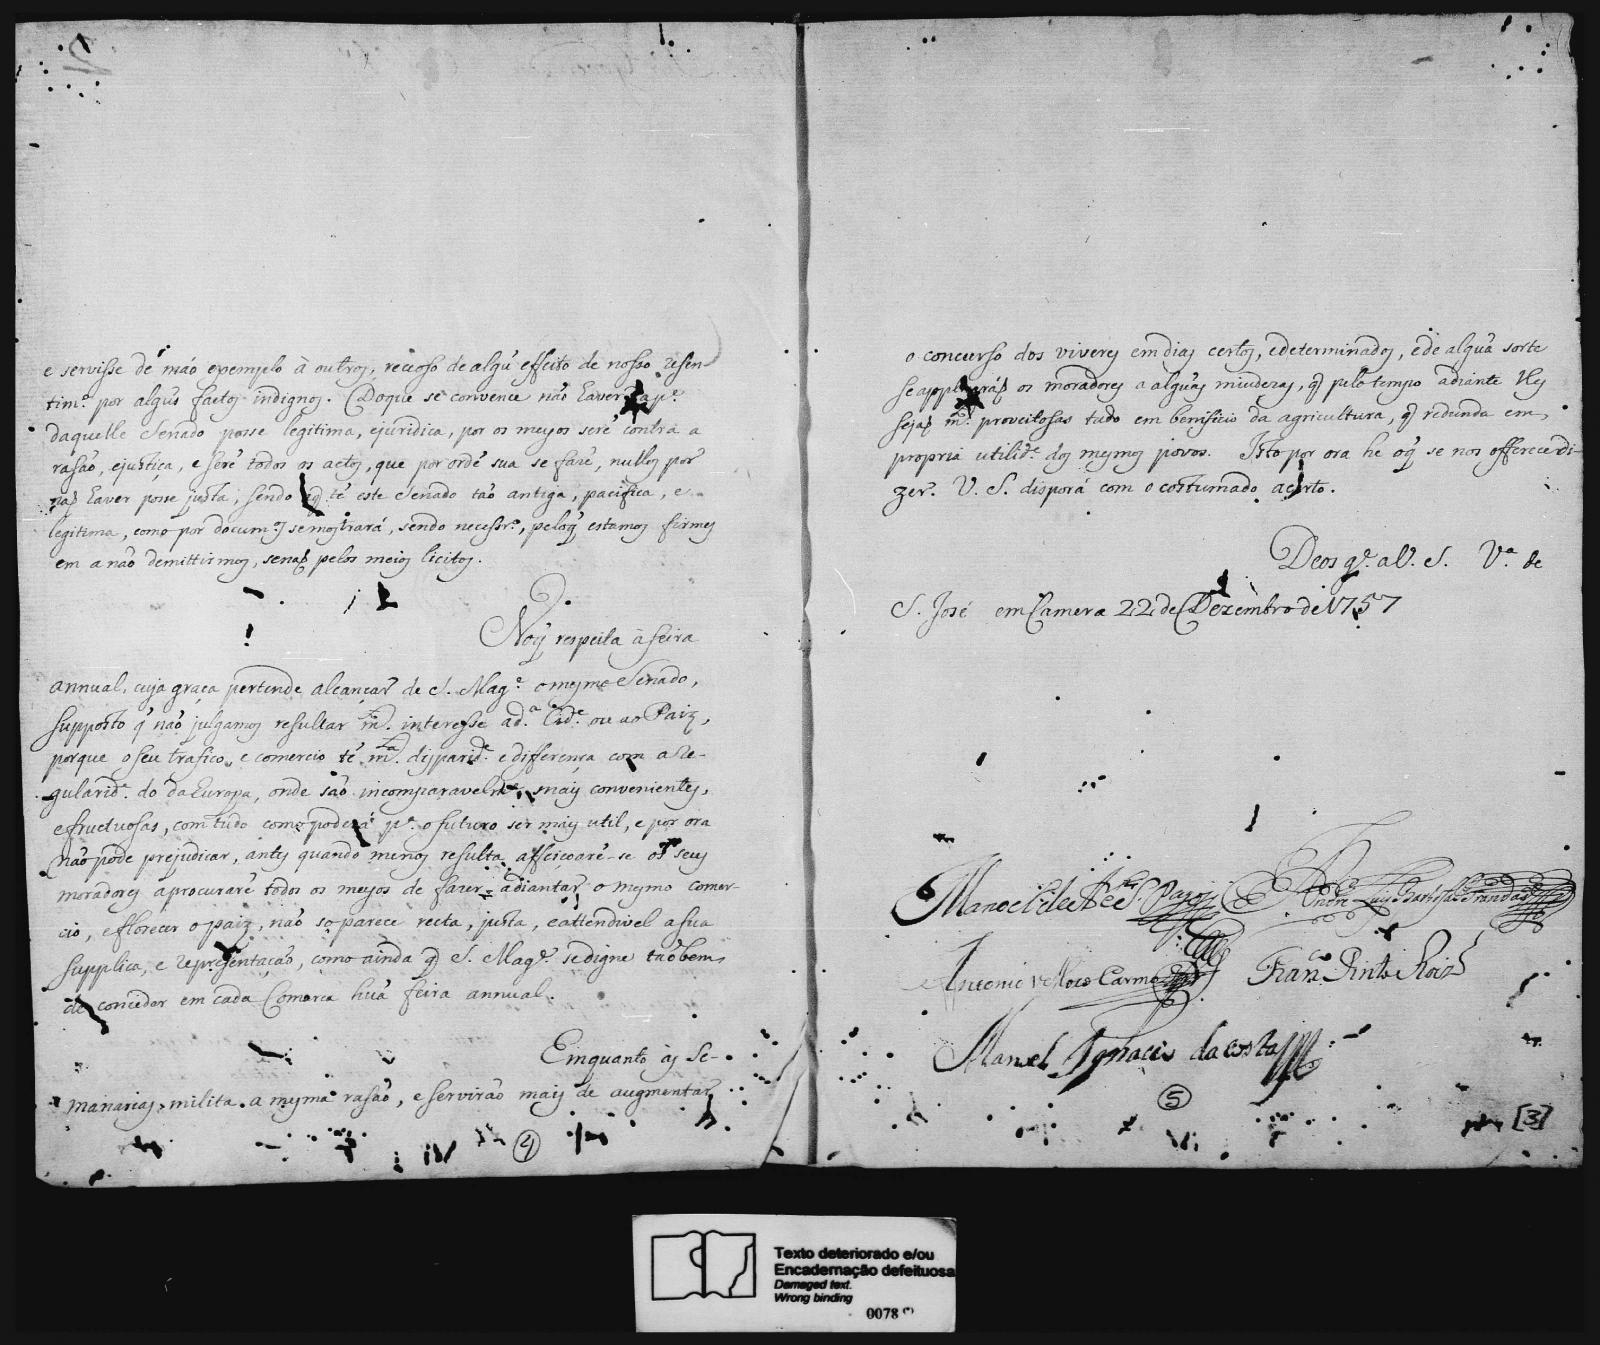 e servisse de máo exemplo à outros, receoso de algũ effeito de nosso resen-
tim.º por algũs factos indignos. Doque se convence não haver da p.e
daquelle Senado posse legitima, ejuridica, por os meyos serẽ contra a
rasão, ejustiça, e serẽ todos os actos, que por ordẽ sua se farẽ, nullos por
não haver posse justa; sendo q̃ tẽ este Senado tão antiga, pacifica, e
legitima, como por docum.os semostrará, sendo necessr.º, peloq̃ estamos firmes
em a não demittirmos, senaõ pelos meios licitos.
Noq̃ respeita à feira
annual, cuja graça pertende alcançar de S. Mag.e omesmo Senado,
supposto q̃ naõ julgamos resultar m.to interesse ad.a Cid.e ou ao Paiz,
porque oseu trafico, e comercio tẽ m.ta disparid.e e differença com a re-
gularid.e do da Europa, onde são incomparavelm.te mais convenientes,
efructuosas, comtudo comopoderá p.a ofuturo ser mais util, e por ora
não pode prejudicar, antes quando menos resulta affeiçoarẽ-se os seus
moradores aprocurarẽ todos os meyos de fazer adiantar o mesmo comer-
cio, eflorecer o paiz, não só parece recta, justa, eattendivel asua
supplica, e representação, como ainda q̃ S. Mag.e sedigne tãobem
de conceder em cada Comarca huã feira annual.
Emquanto às Se-
manarias milita a mesma rasão, e servirão mais de augmentar
4
o concurso dos viveres emdias certos, edeterminados, ede algũa sorte
seapplicaráõ os moradores a algũas miudezas, q̃ pelo tempo adiante lhes
sejaõ m.to proveitosas tudo em benificio da agricultura, q̃ redunda em
propria utilid.e dos mesmos povos. Isto por ora he oq̃ se nos offerece di-
zer. V. S. disporá com o costumado acerto.
Deos g.e a V. S. V.a de
S. José em Camera 22 de Dezembro de 1757
Manoel
Andre Luis
Antonio Velloso Carmo
Fran.co Pinto Roiz
Manoel Ignacio da Costa
5
[3]
Texto deteriorado e/ou
Encadernação defeituosa
Damaged text.
Wrong binding
0078 (*)